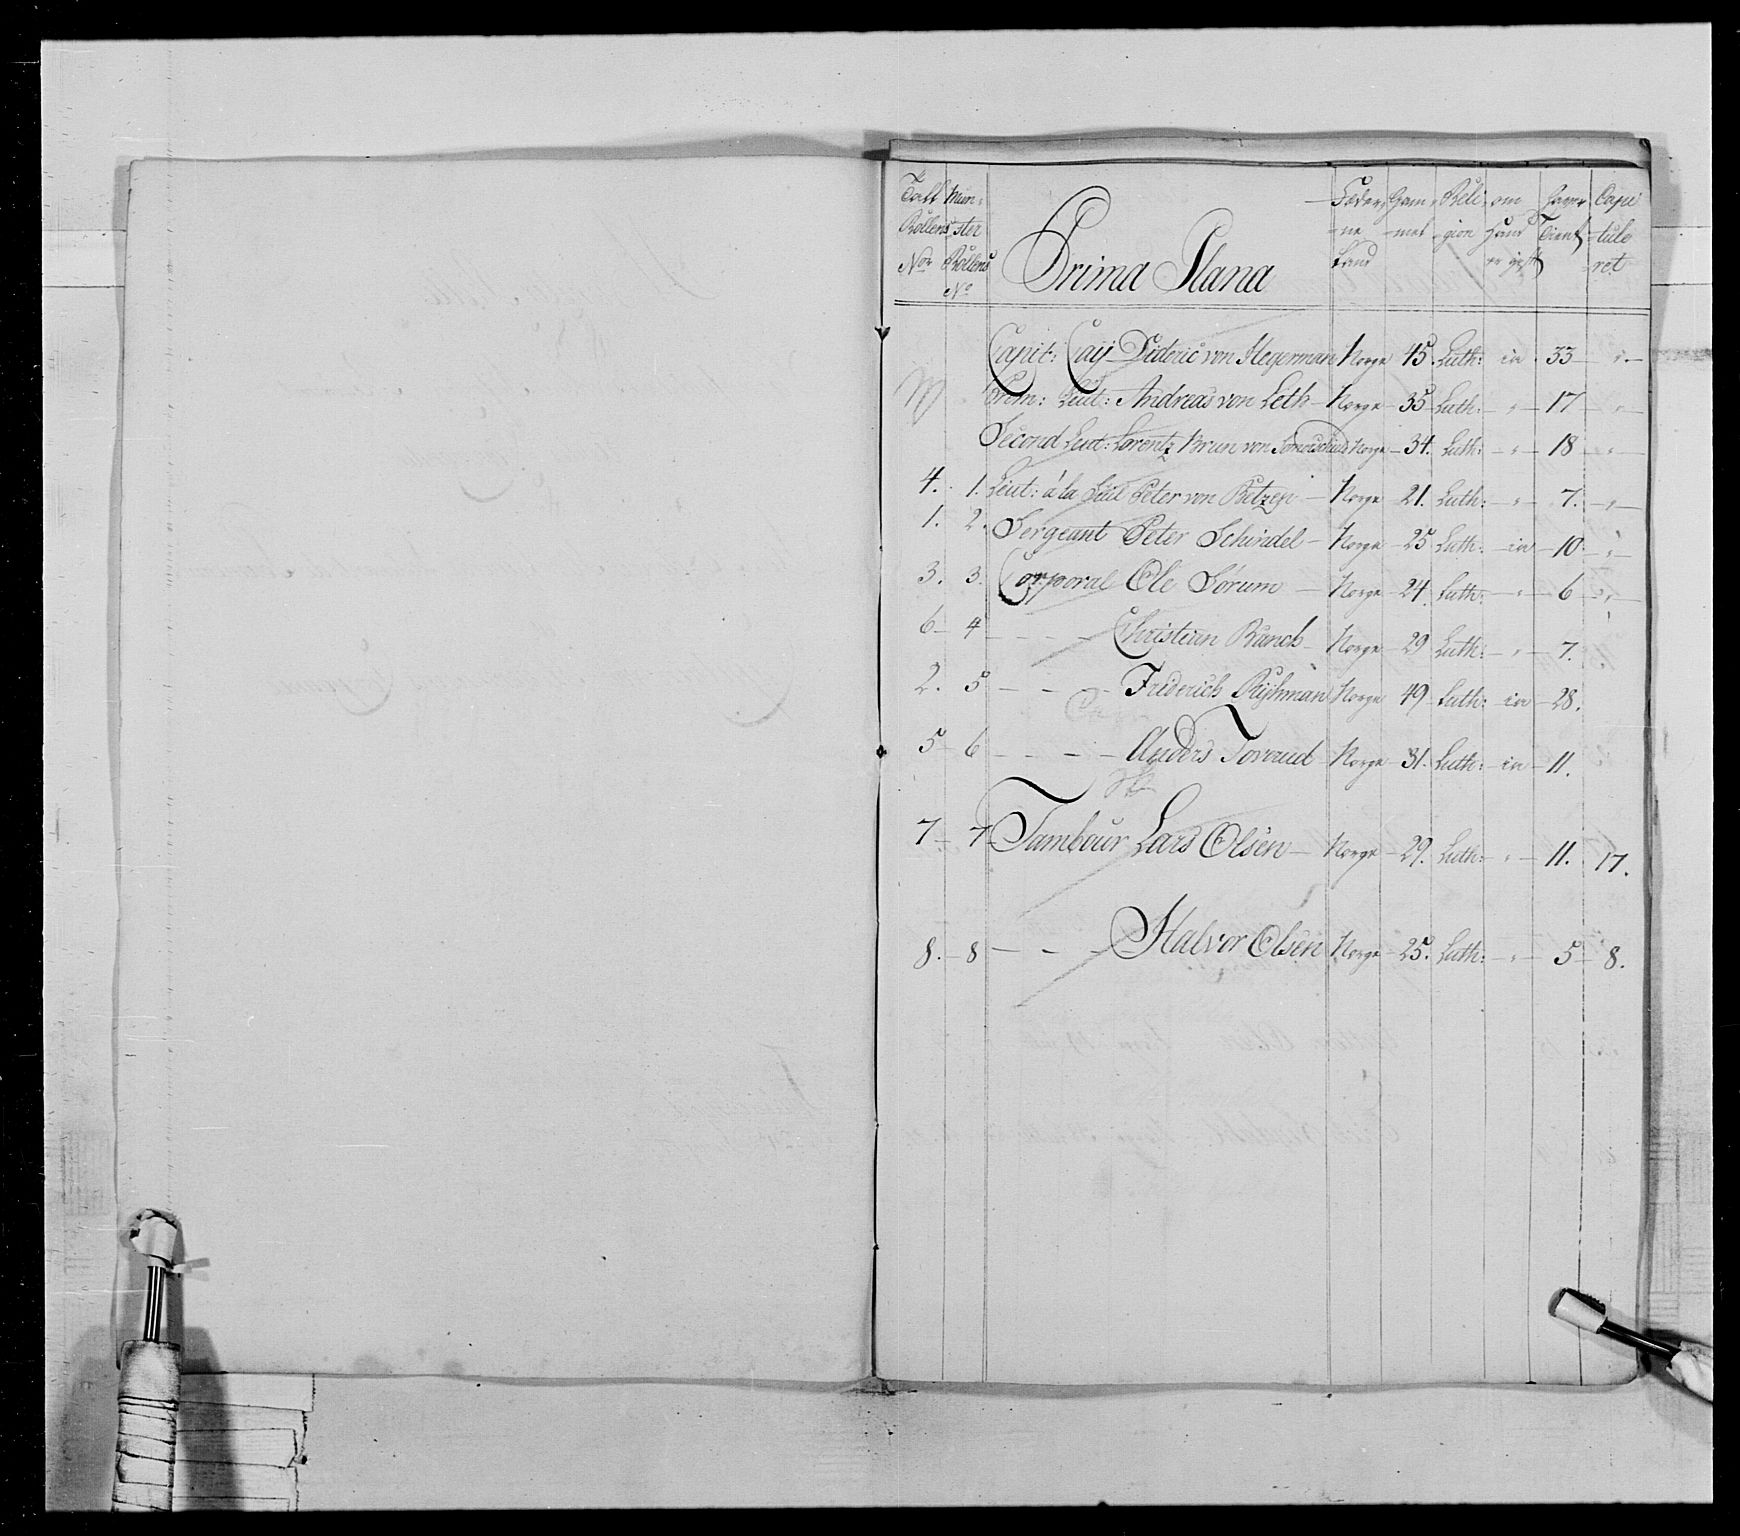 Tall Mun- Föder- Gam- Reli- om hawer Capi
Rollens ster -ne -mel -gion hand Tient -tule
No Rollens Land er gift -ret
No
Prima Plana
Capit: Caij Dideric von Hegerman Norge 45. Luth: 33
Prem: Leut: Andreas von Leth Norge 35 Luth: " 17 "
Second Leut: Lorentz Brun von Norge 34. Luth: " 18 "
4. 1. Leut: á la Suit Peter von Norge 21. Luth: " 7. "
1. 2. Sergeant Peter Schindel Norge 25 Luth: 10 "
3. 3. Corporal Ole Sörum Norge 24 Luth: " 6 "
6 4 - - - Christian Ranch Norge 29 Luth: " 7.
2. 5 - - - Friderich Norge 49 Luth: 28.
5 6 - - - Anders Norge 31. Luth: 11.
7 7 Tambour Lars Olsen Norge 29. Luth: " 11. 17.
8. 8 - - - Halvor Olsen Norge 25. Luth: " 5 8.